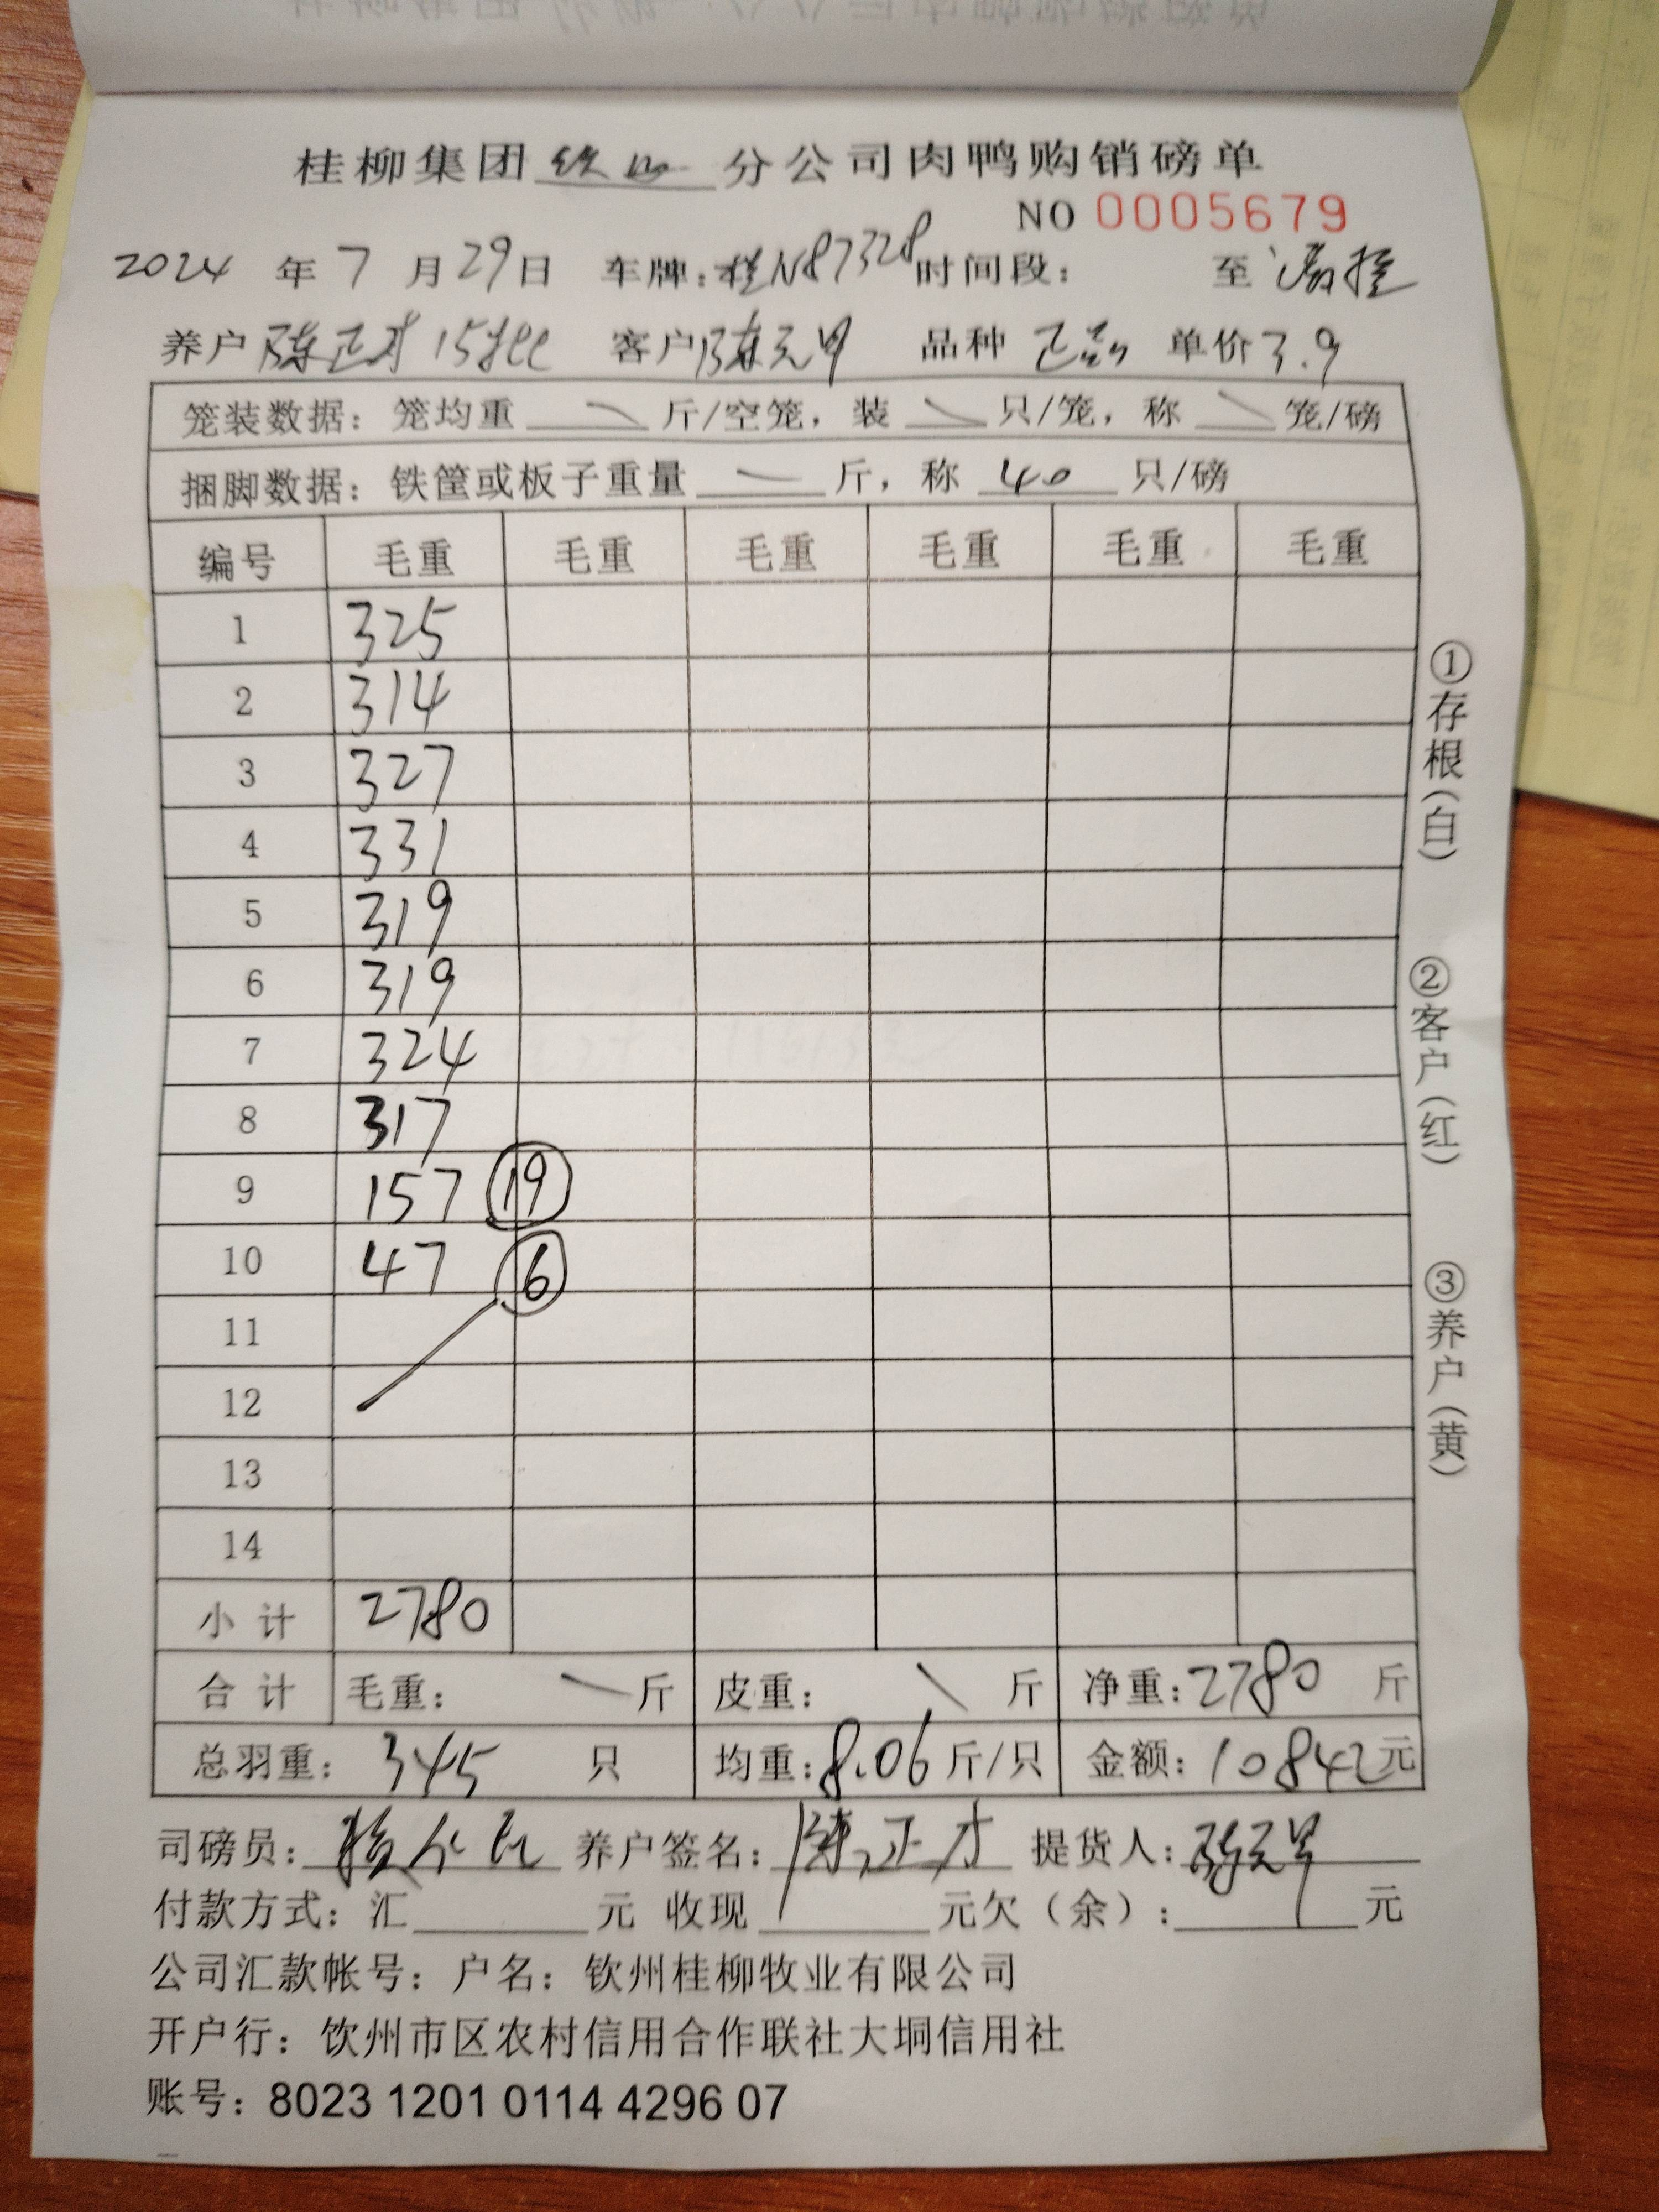 桂柳集团 分公司肉鸭购销磅单
NO 0005679
2024 年 7 月 29 日 车牌:桂N87328 时间段: 至
养户 陈正才 15批 客户 陈元 品种 单价 3.9
笼装数据: 笼均重 斤/空笼, 装 只/笼, 称 笼/磅
捆脚数据: 铁筐或板子重量 斤, 称 40 只/磅
编号 毛重 毛重 毛重 毛重 毛重 毛重
1 325
2 314
3 327
4 331
5 319
6 319
7 324
8 317
9 157 19
10 47 6
11
12
13
14
小计 2780
合计 毛重: 斤 皮重: 斤 净重: 2780 斤
总羽重: 345 只 均重: 8.06 斤/只 金额: 10842 元
司磅员: 养户签名: 陈正才 提货人:
付款方式: 汇 元 收现 元欠(余): 元
公司汇款帐号: 户名: 钦州桂柳牧业有限公司
开户行: 饮州市区农村信用合作联社大垌信用社
账号: 8023 1201 0114 4296 07
①存根(白)
②客户(红)
③养户(黄)